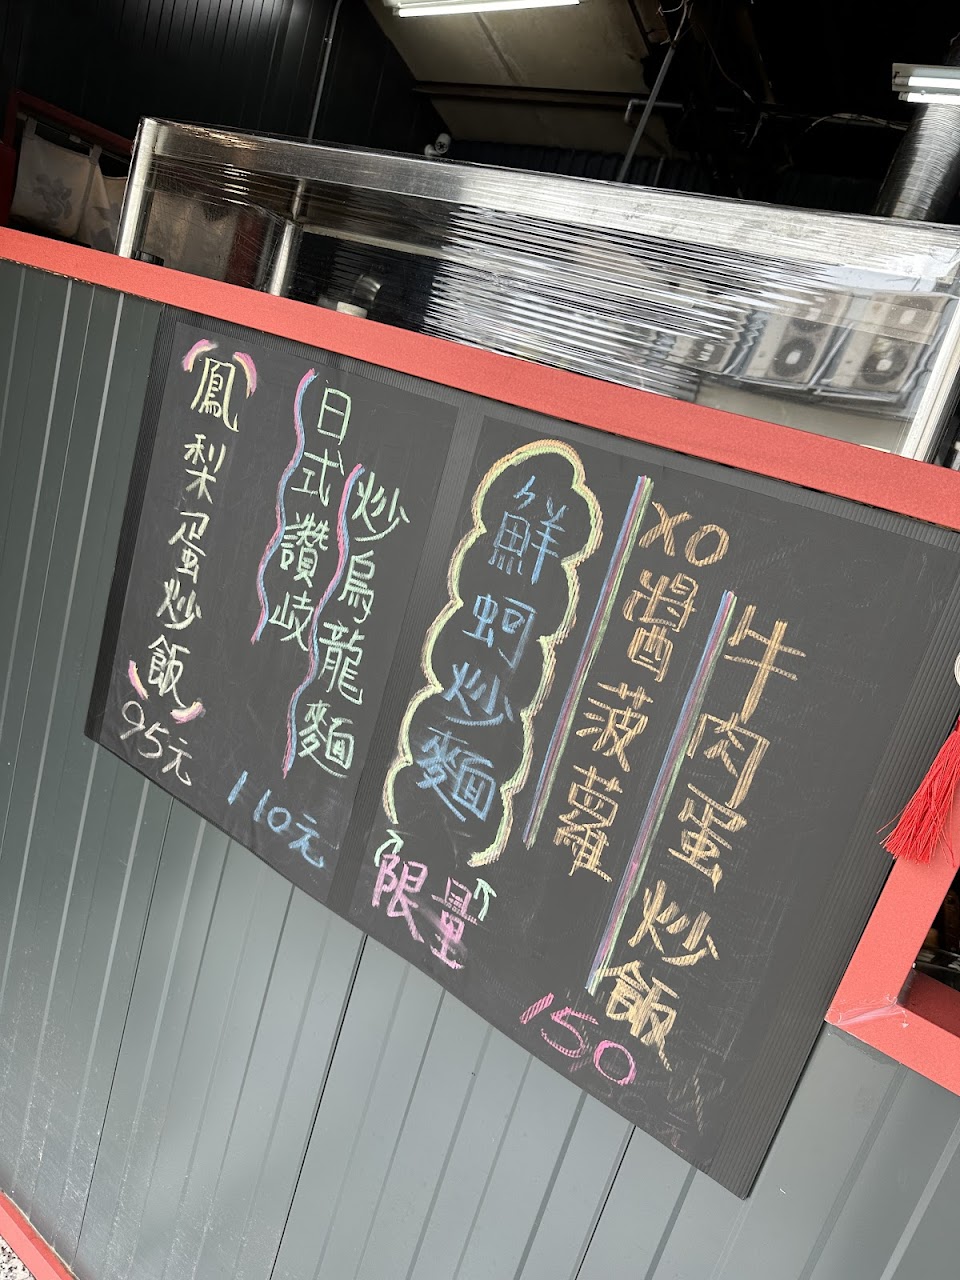 XO醬菠蘿
牛肉蛋炒飯
150
鮮蚵炒麵
限量
日式讚岐
炒烏龍麵
110元
鳳梨蛋炒飯
95元